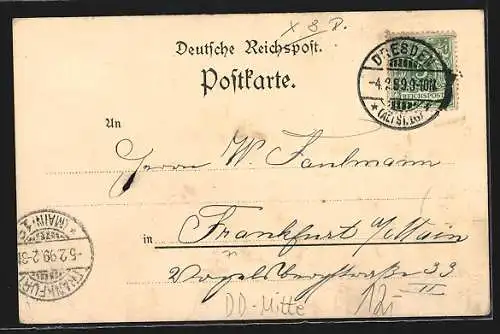 x 8 D.
Deutsche Reichspost.
Postkarte.
DRESDEN
-4.2.99.9-10N.
* (ALTST.16) *
REICHSPOST
An
Herrn W. Faulmann
in Frankfurt a/Main
Vogelsbergstraße 33
II
FRANKFURT
-5.2.99.2-3
(MAIN) 1
DD-Mitte
12,-